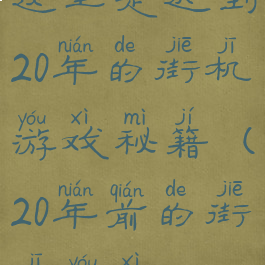 nián de jiē jī
20年的街机
yóu xì mì jí
游戏秘籍（
nián qián de jiē
20年前的街
jī yóu xì